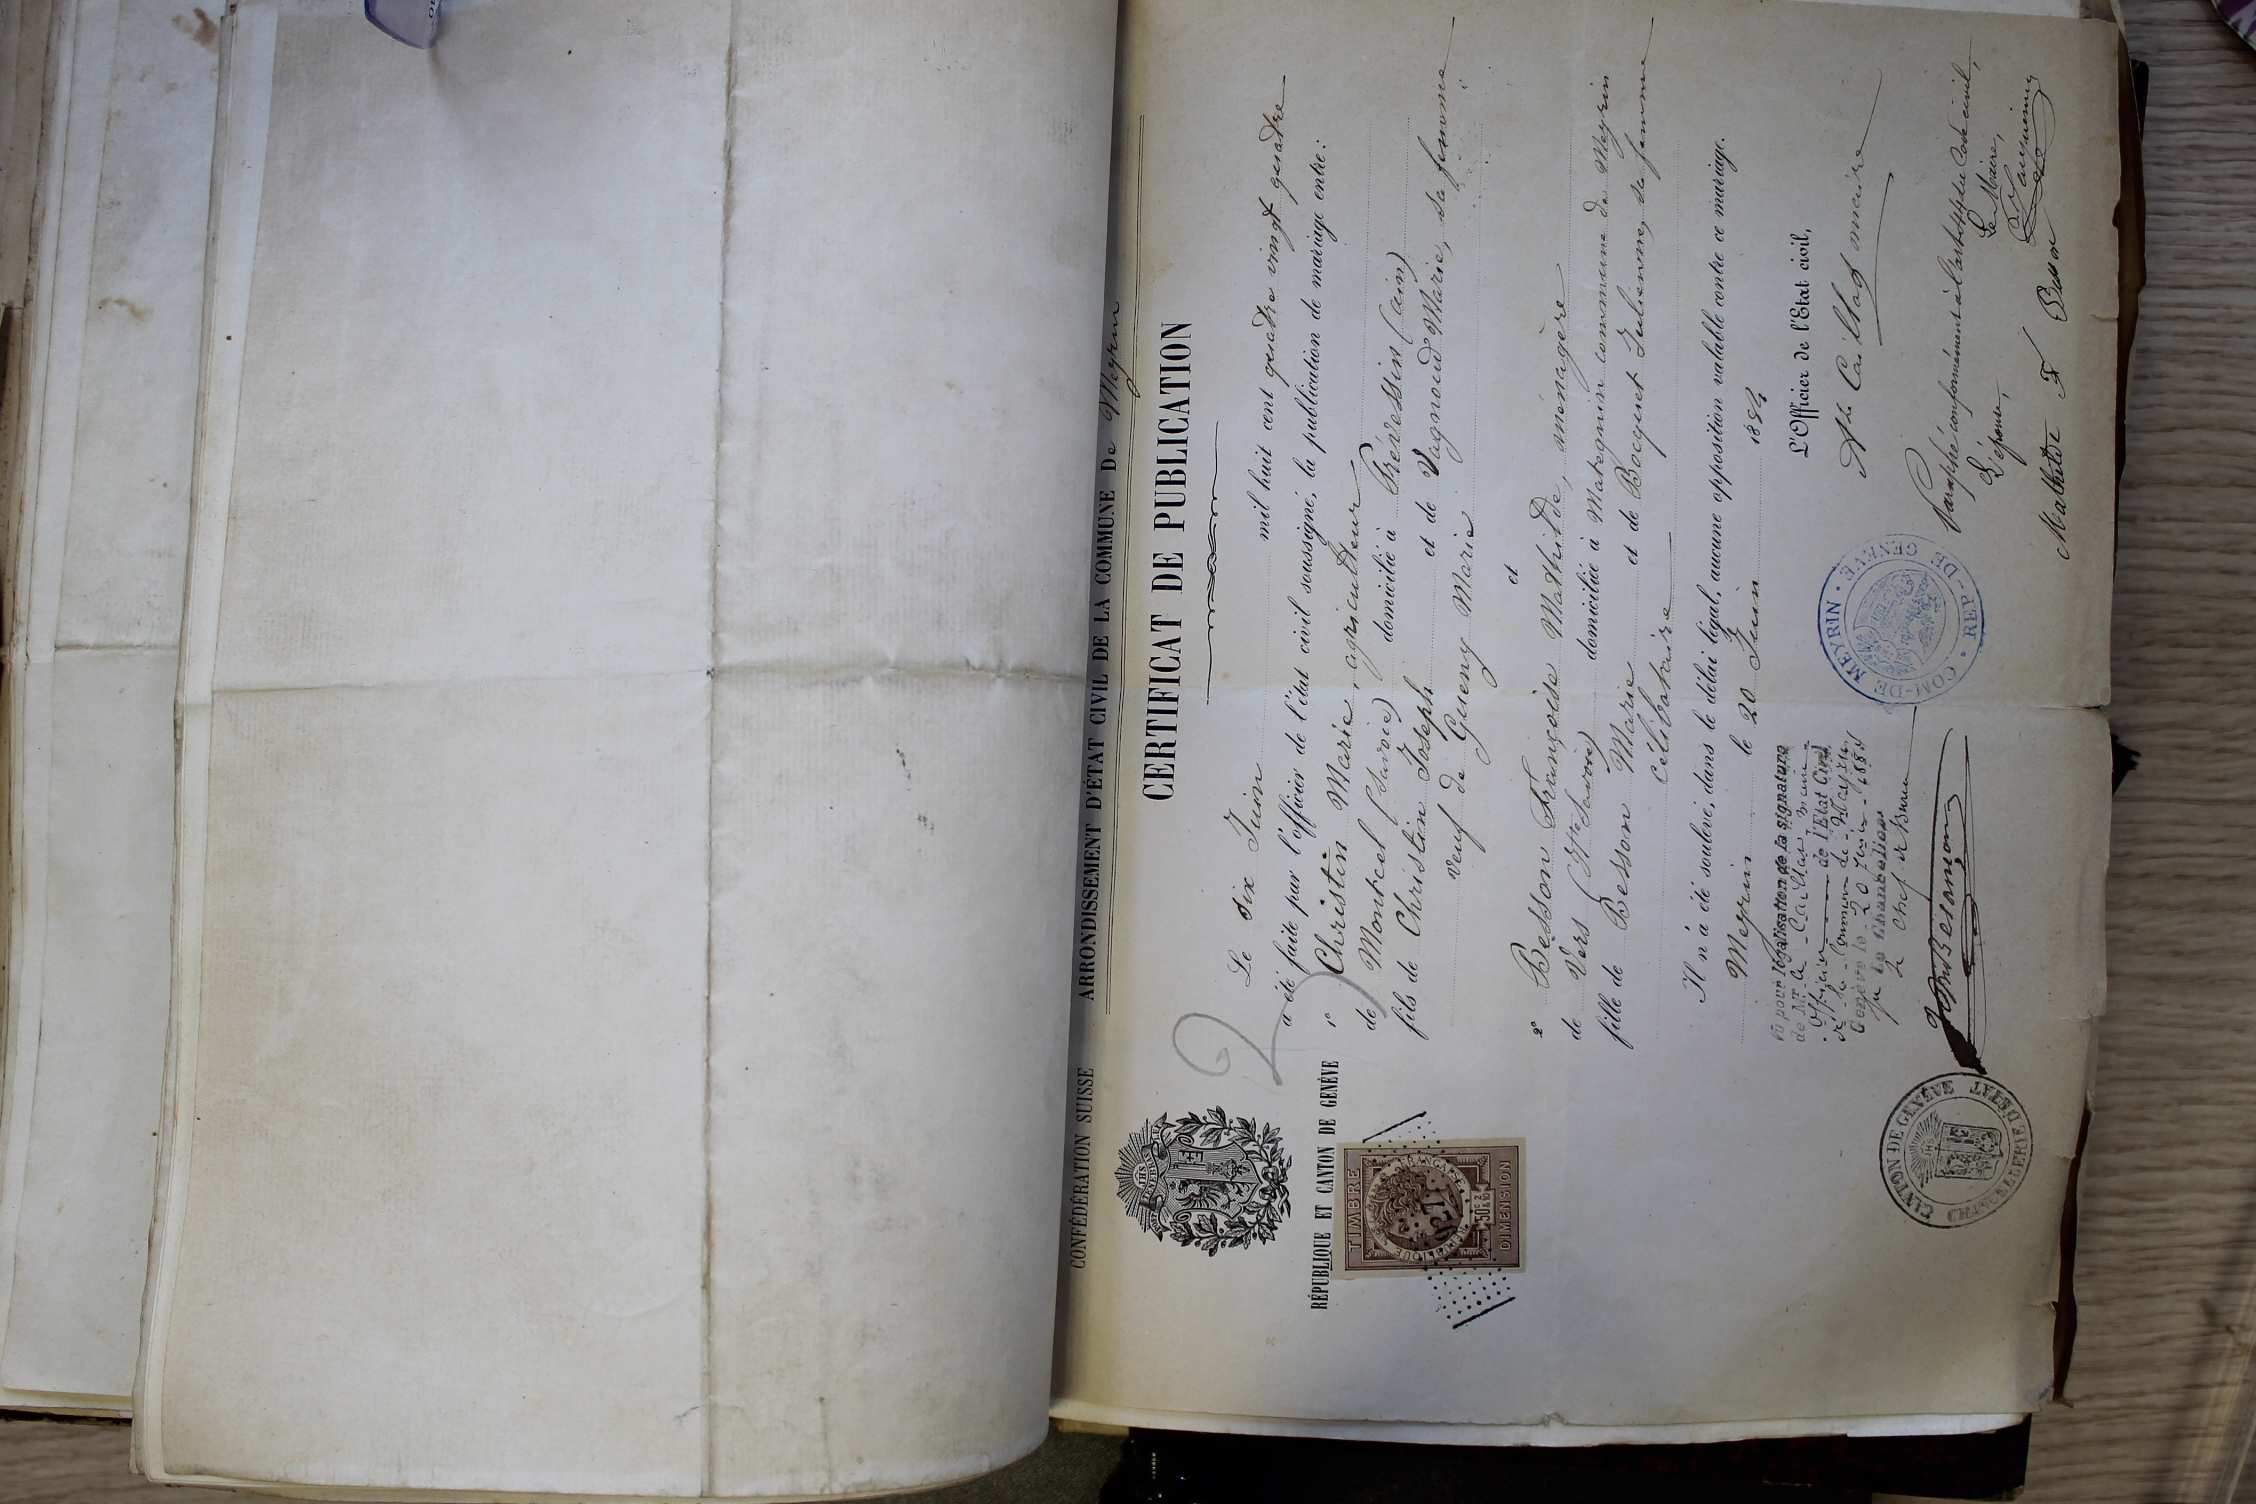 CONFÉDÉRATION SUISSE ARRONDISSEMENT D'ÉTAT CIVIL DE LA COMMUNE De Meyrin
CERTIFICAT DE PUBLICATION
RÉPUBLIQUE ET CANTON DE GENÈVE
2
Le six Juin mil huit cent quatre vingt quatre
a été faite par l'officier de l'état civil soussigné, la publication de mariage entre:
1° Christin Marie, agriculteur
de Montcel (Savoie) domicilié à Prévessin (ain)
fils de Christin Joseph et de Vagnoud Marie, sa femme
veuf de Gueny Marie
et
2° Besson Françoise Mathilde, ménagère
de Vers (Hte Savoie) domiciliée à Mategnin commune de Meyrin
fille de Besson Marie et de Bocquet Julienne, sa femme
célibataire
Il n'a été soulevé, dans le délai légal, aucune opposition valable contre ce mariage.
Meyrin le 20 Juin 1884
L'Officier de l'Etat civil,
Caillas maire
Vu pour légalisation de la signature
de Mr A. Caillas maire
Officier de l'Etat Civil
de la Commune de Meyrin
Genève le 20 Juin 1884
la Chancellerie
Le Chef de Bureau
Paraphé conformément à l'article du Code civil,
L'épouse,
Le Maire,
Mathilde F Besson
TIMBRE
DIMENSION
COM-DE MEYRIN · REP-DE GENEVE
CANTON DE GENEVE
CHANCELLERIE D'ETAT